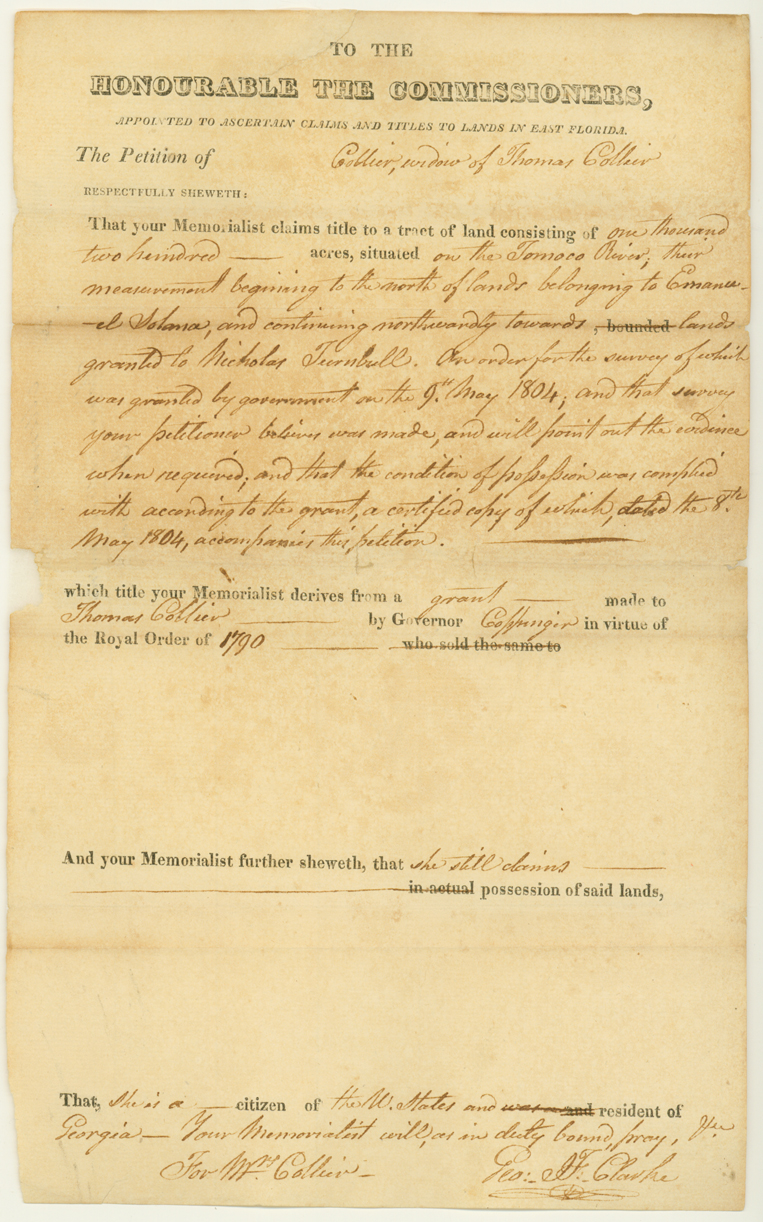 TO THE
HONOURABLE THE COMMISSIONERS,
APPOINTED TO ASCERTAIN CLAIMS AND TITLES TO LANDS IN EAST FLORIDA.
The Petition of Collier, widow of Thomas Collier
RESPECTFULLY SHEWETH:
That your Memorialist claims title to a tract of land consisting of one thousand
two hundred — acres, situated on the Tomoco River; their
measurement begining to the north of lands belonging to Emanu-
-el Solana, and continuing northwardly towards , bounded lands
granted to Nicholas Turnbull. An order for the survey of which
was granted by government on the 9th. May 1804; and that survey
your petitioner believes was made, and will point out the evidence
when required; and that the condition of possession was complied
with according to the grant, a certified copy of which, dated the 8th.
May 1804, accompanies this petition.
which title your Memorialist derives from a grant — made to
Thomas Collier — by Governor Coppinger in virtue of
the Royal Order of 1790 — who sold the same to
And your Memorialist further sheweth, that she still claims —
— in actual possession of said lands,
That, she is a — citizen of the U. States and was a and resident of
Georgia — Your Memorialist will, as in duty bound, pray, &c
For Mrs. Collier — Geo: J. F. Clarke